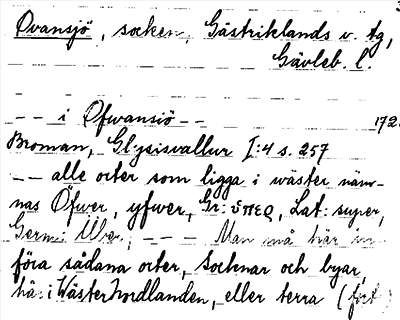 Ovansjö, socken, Gästriklands v. tg,
Gävleb. l.
-- i Öfwansiö -- 172
Broman, Glysisvallur I:4 s. 257
-- alle orter som ligga i wäster näm-
nas Öfwer, yfwer, Gr: ὑπερ, Lat: super,
Germ: Über, --- Man må här in
föra sådana orter, Socknar och byar,
hä: i WästerNordlanden, eller terra (fort